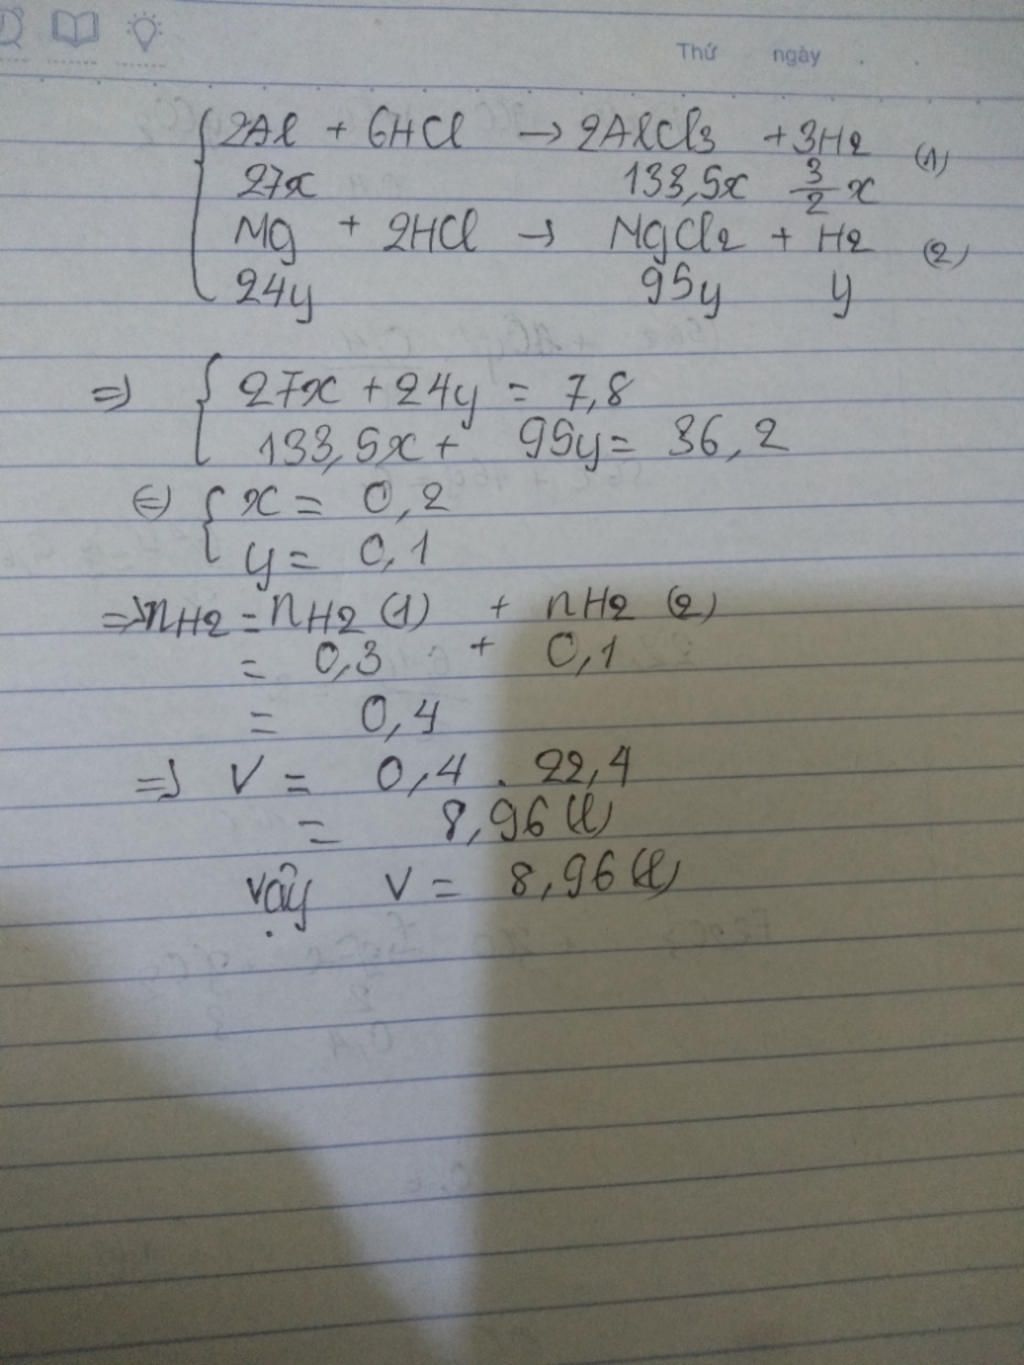 Thứ ngày
2Al + 6HCl → 2AlCl3 + 3H2 (1)
27x 133,5x 3/2 x
Mg + 2HCl → MgCl2 + H2 (2)
24y 95y y
=> { 27x + 24y = 7,8
133,5x + 95y = 36,2
<=> { x = 0,2
y = 0,1
=> nH2 = nH2 (1) + nH2 (2)
= 0,3 + 0,1
= 0,4
=> V = 0,4 . 22,4
= 8,96 (l)
Vậy V = 8,96 (l)